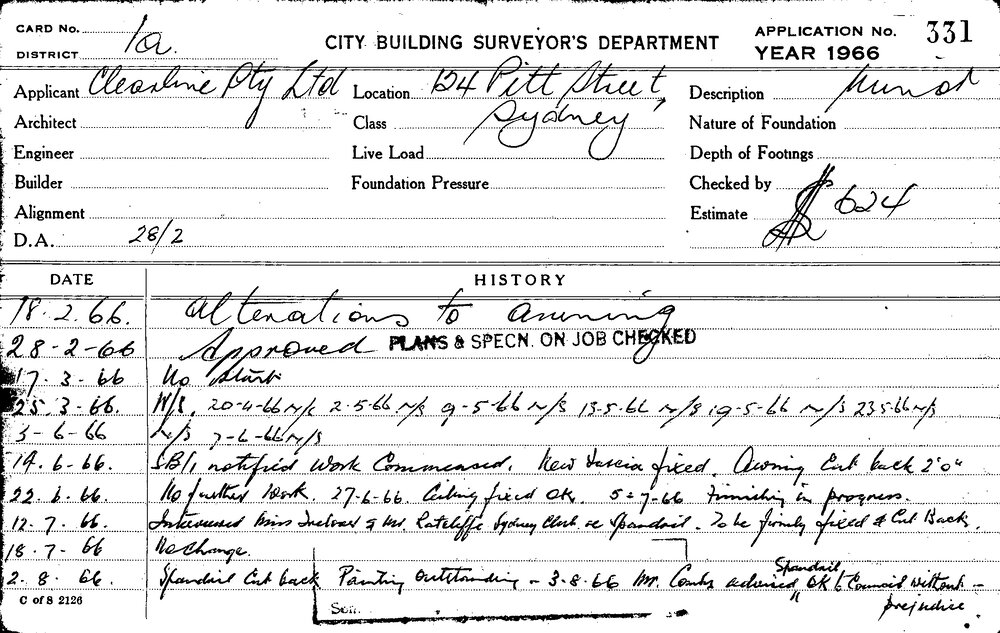 CARD No.
DISTRICT 1a.
CITY BUILDING SURVEYOR'S DEPARTMENT
APPLICATION No. 331
YEAR 1966
Applicant Clearline Pty Ltd
Location 124 Pitt Street,
Sydney
Description
Architect
Class
Nature of Foundation
Engineer
Live Load
Depth of Footings
Builder
Foundation Pressure
Checked by
Alignment
Estimate $ 624
D.A. 28/2
DATE HISTORY
18.2.66. Alterations to awning
28-2-66 Approved PLANS & SPECN. ON JOB CHECKED
17.3-66 No Start
25.3-66. N/S, 20-4-66 N/S 2-5-66 N/S 9-5-66 N/S 13-5-66 N/S 19-5-66 N/S 23.5.66 N/S
3-6-66 N/S 7-6-66 N/S
14.6-66. notified Work Commenced. New Fascia fixed. Awning Cut back 2'0"
22.6.66. No further Work. 27-6-66. Ceiling fixed OK. 5-7-66 Finishing in progress.
12.7.66. Interviewed Miss & Mr. Ratcliffe Sydney Club re Spandril. To be firmly fixed & Cut Back.
18.7-66 No Change.
2.8.66. Spandril Cut back Painting Outstanding - 3.8.66 Mr. advised Spandril OK to Council without -
prejudice.
C of S 2126